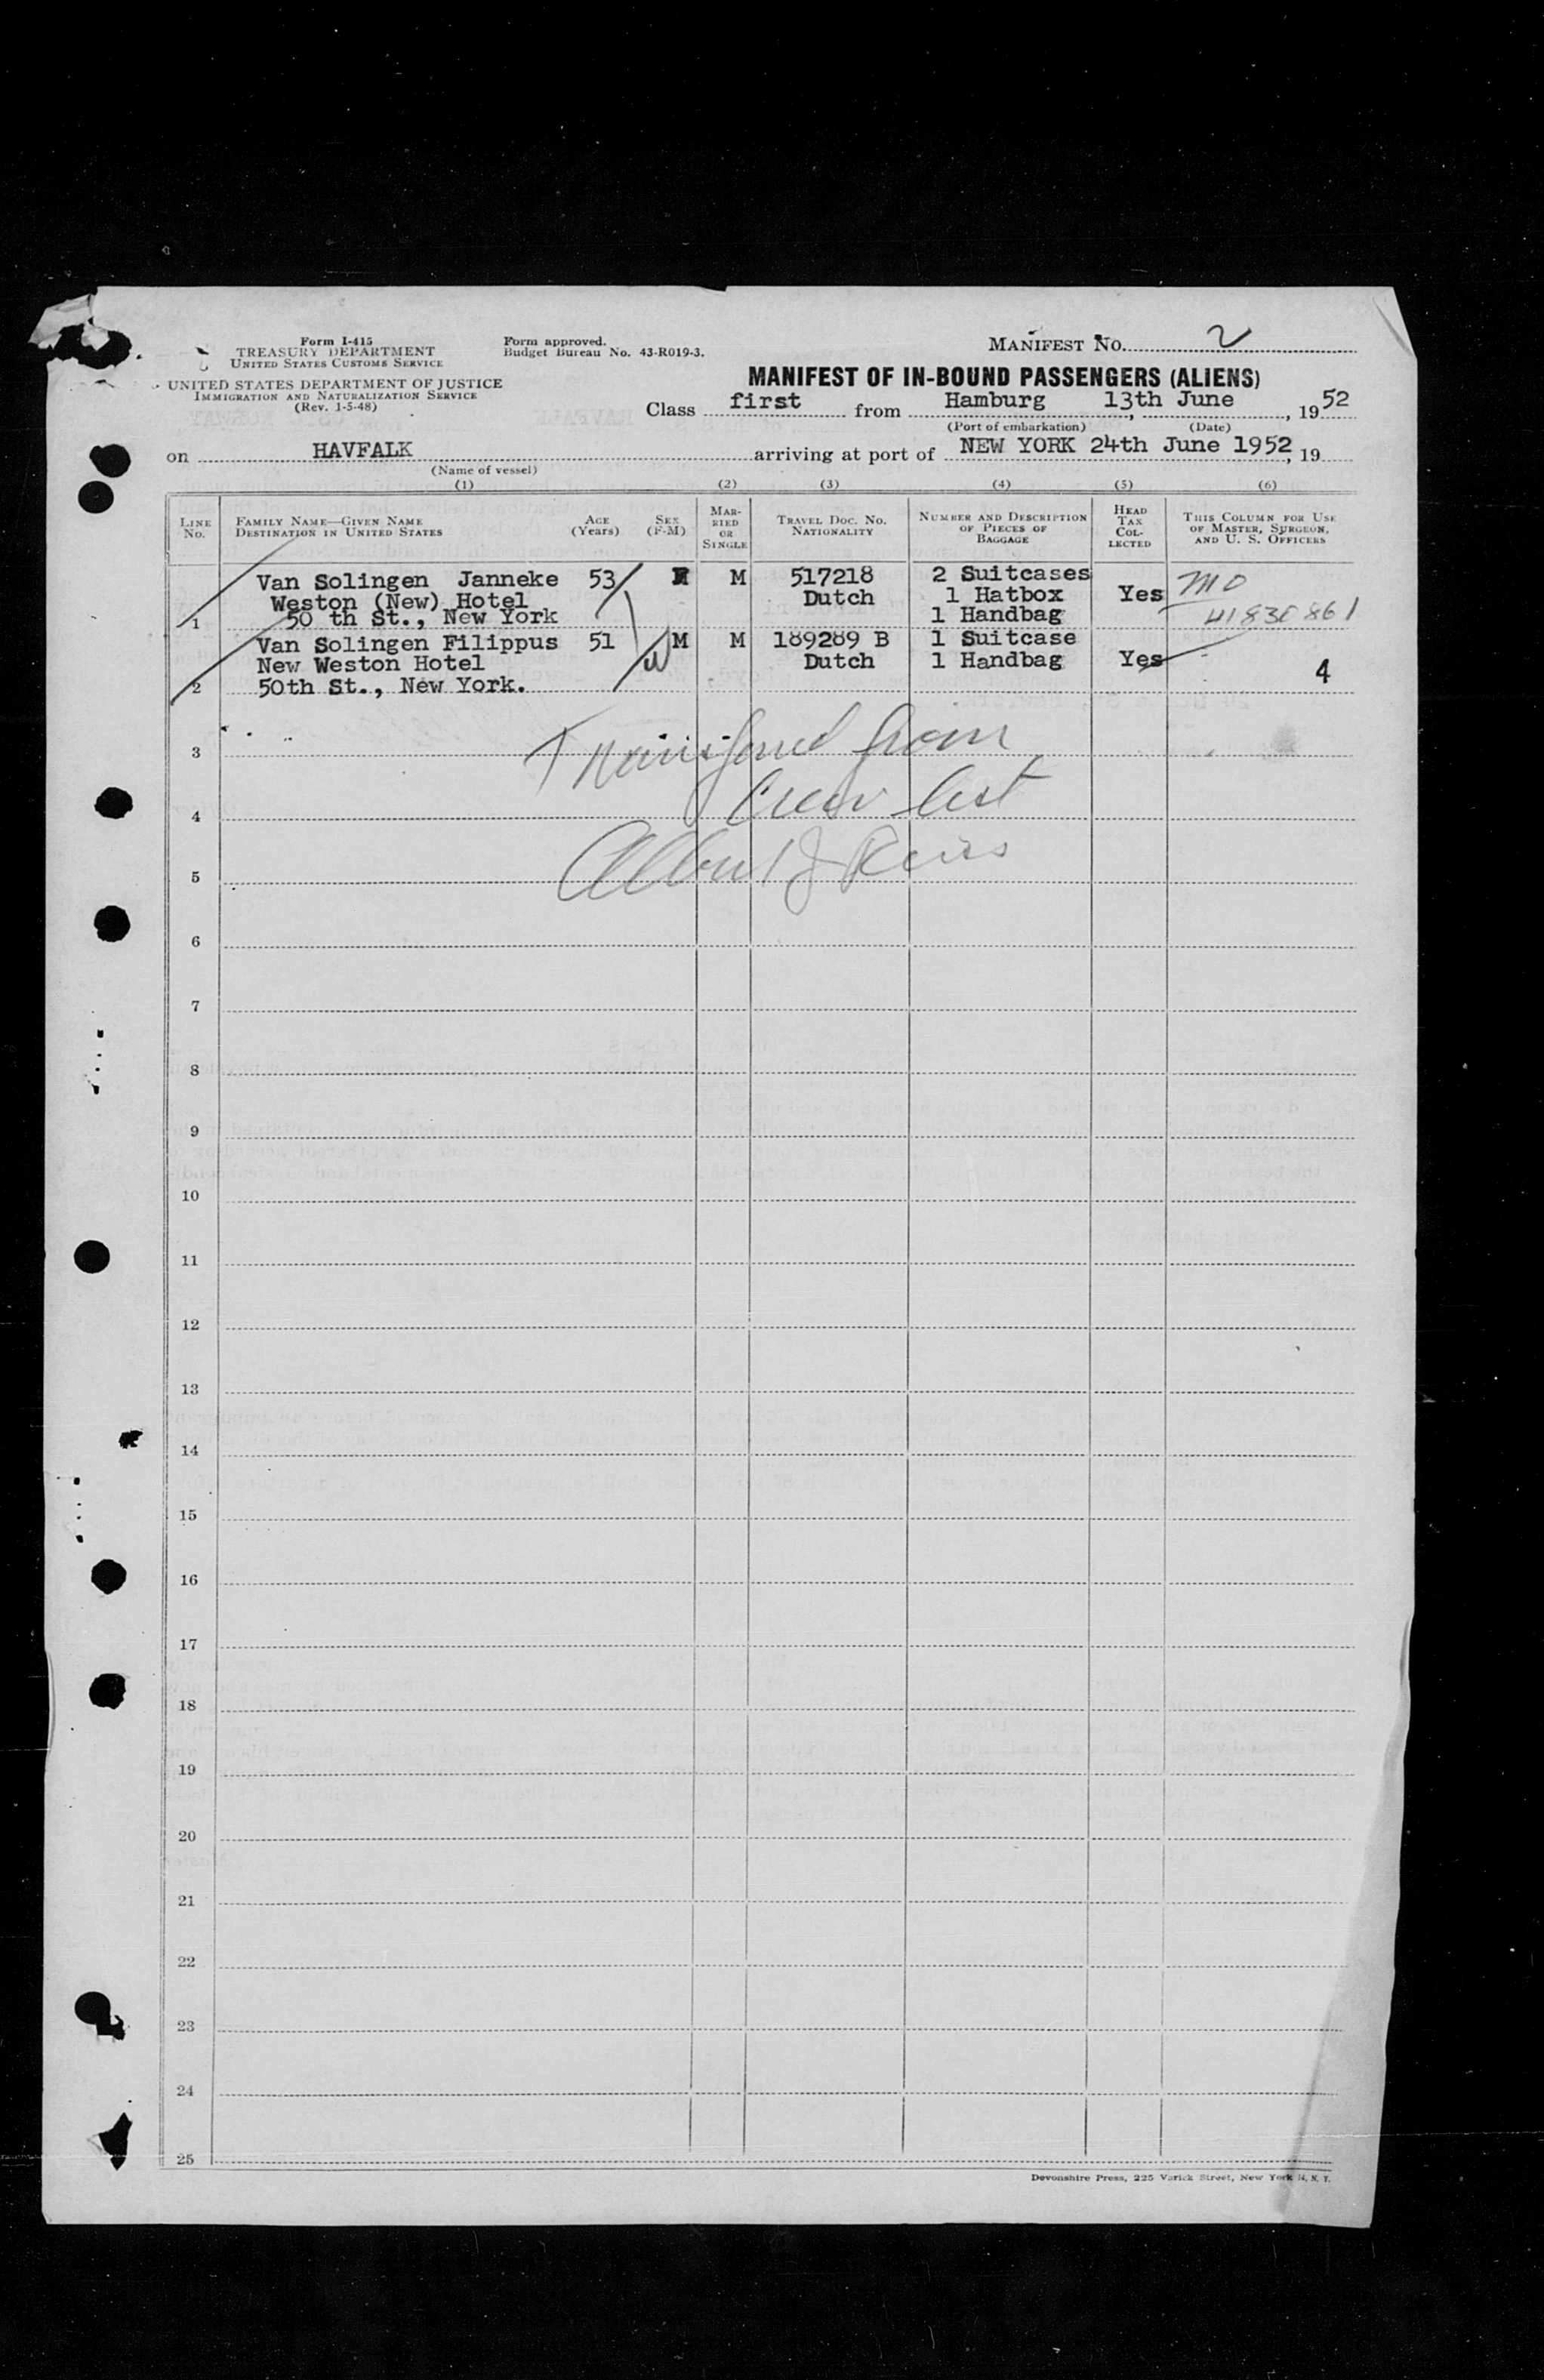 Form I-415
TREASURY DEPARTMENT
UNITED STATES CUSTOMS SERVICE
UNITED STATES DEPARTMENT OF JUSTICE
IMMIGRATION AND NATURALIZATION SERVICE
(Rev. 1-5-48)
Form approved.
Budget Bureau No. 43-R019-3.
MANIFEST NO. 2
MANIFEST OF IN-BOUND PASSENGERS (ALIENS)
Class first from Hamburg 13th June, 1952
(Port of embarkation) (Date)
on HAVFALK arriving at port of NEW YORK 24th June 1952, 19
(Name of vessel)
(1) (2) (3) (4) (5) (6)
LINE NO.
FAMILY NAME—GIVEN NAME
DESTINATION IN UNITED STATES
AGE (Years)
SEX (F-M)
MARRIED OR SINGLE
TRAVEL DOC. NO. NATIONALITY
NUMBER AND DESCRIPTION OF PIECES OF BAGGAGE
HEAD TAX COLLECTED
THIS COLUMN FOR USE OF MASTER, SURGEON, AND U. S. OFFICERS
Van Solingen Janneke 53 M 517218 2 Suitcases
Weston (New) Hotel Dutch 1 Hatbox Yes MO
1 50 th St., New York 1 Handbag
Van Solingen Filippus 51 M M 189289 B 1 Suitcase
New Weston Hotel Dutch 1 Handbag Yes 4
2 50th St., New York.
3 Transferred from
4 Crew list
5 Albert J Reiss
6
7
8
9
10
11
12
13
14
15
16
17
18
19
20
21
22
23
24
25
Devonshire Press, 225 Varick Street, New York 14, N. Y.